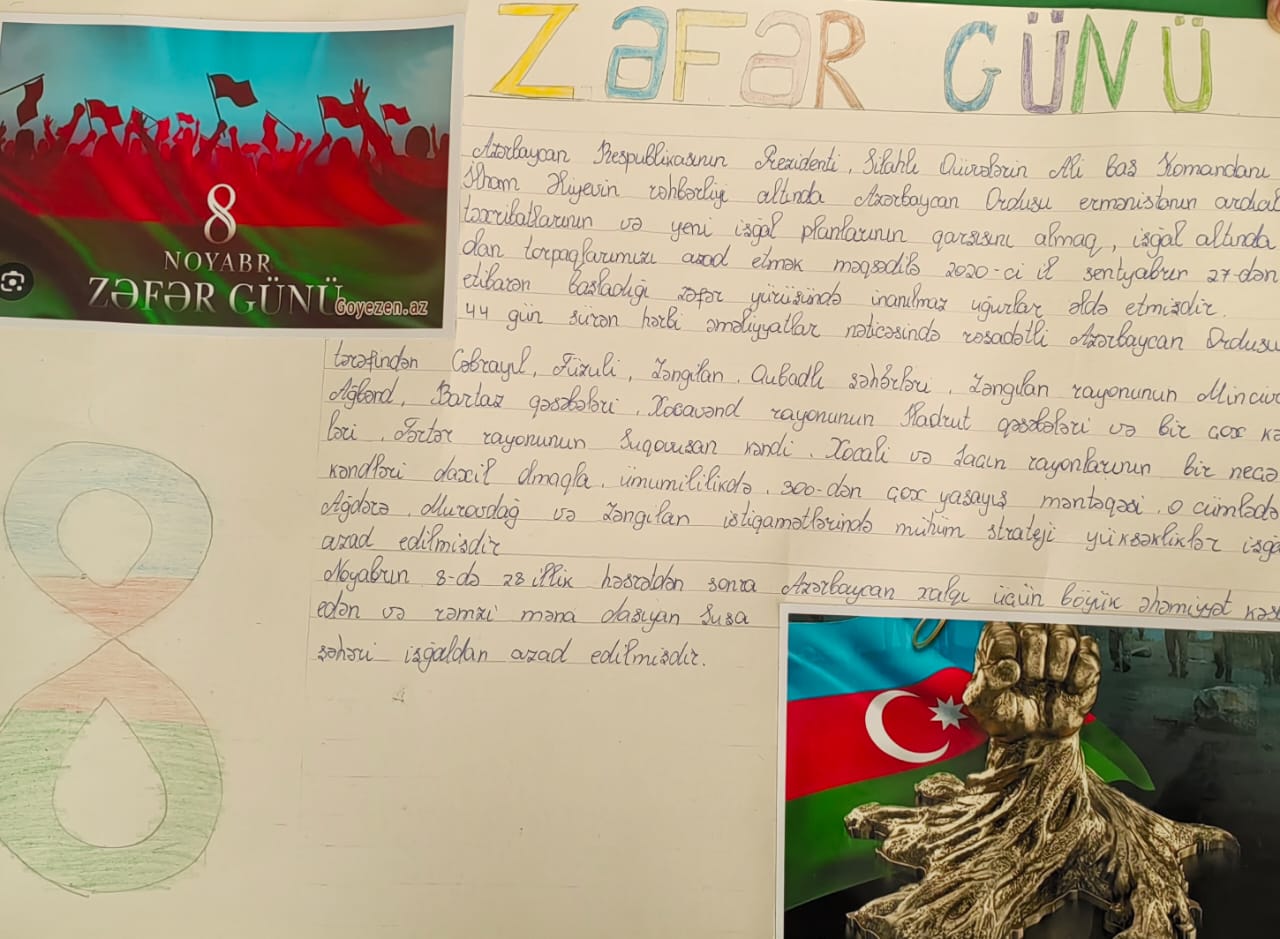 ZƏFƏR GÜNÜ
8
NOYABR
ZƏFƏR GÜNÜ
Goyezen.az
Azərbaycan Respublikasının Prezidenti, Silahlı Qüvvələrin Ali baş Komandanı
İlham Əliyevin rəhbərliyi altında Azərbaycan Ordusu ermənistanın ardıcıl
təxribatlarının və yeni işğal planlarının qarsısını almaq, işğal altında
dan torpaqlarımızı azad etmək məqsədilə 2020-ci il sentyabrın 27-dən
etibarən başladığı zəfər yürüsündə inanılmaz uğurlar əldə etmisdir.
44 gün sürən hərbi əməliyyatlar nəticəsində rəsadətli Azərbaycan Ordusu
tərəfindən Cəbrayıl, Füzuli, Zəngilan, Qubadlı şəhərləri, Zəngilan rayonunun Minciv
Ağbənd, Bartaz qəsəbələri, Xocavənd rayonunun Hadrut qəsəbələri və bir çox kə
ləri, Tərtər rayonunun Suqovuşan kəndi, Xocali və Laçın rayonlarının bir neçə
kəndləri daxil olmaqla, ümumililikdə, 300-dən çox yaşayış məntəqəsi, o cümlədə
Ağdərə, Murovdağ və Zəngilan istiqamətlərində mühüm strateji yüksəkliklər işğa
azad edilmisdir
Noyabrın 8-də 28 illik həsrətdən sonra Azərbaycan xalqı üçün böyük əhəmiyyət kəs
edən və rəmzi məna dasıyan Susa
şəhəri işğaldan azad edilmisdir.